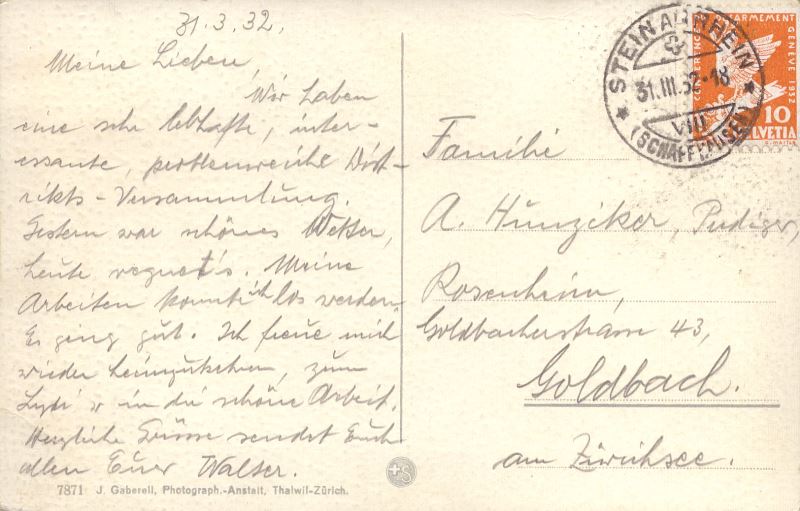 31.3.32.
Meine Lieben,
Wir haben
eine sehr lebhafte, inter-
essante, problemreiche Dist-
rikts-Versammlung.
Gestern war schönes Wetter,
heute regnet's. Meine
Arbeiten konnte ich los werden.
Es ging gut. Ich freue mich
wieder heimzukehren, zum
Lydi u in die schöne Arbeit.
Herzliche Grüsse sendet Euch
allen Euer Walter.
7871 J. Gaberell, Photograph.-Anstalt, Thalwil-Zürich.
STEIN AM RHEIN
31.III.32-18
VIII
(SCHAFFHAUSEN)
CONFERENCE DU DESARMEMENT GENEVE 1932
10
HELVETIA
Familie
A. Hunziker, Prediger,
Rosenheim,
Goldbacherstrasse 43,
Goldbach.
am Zürichsee.